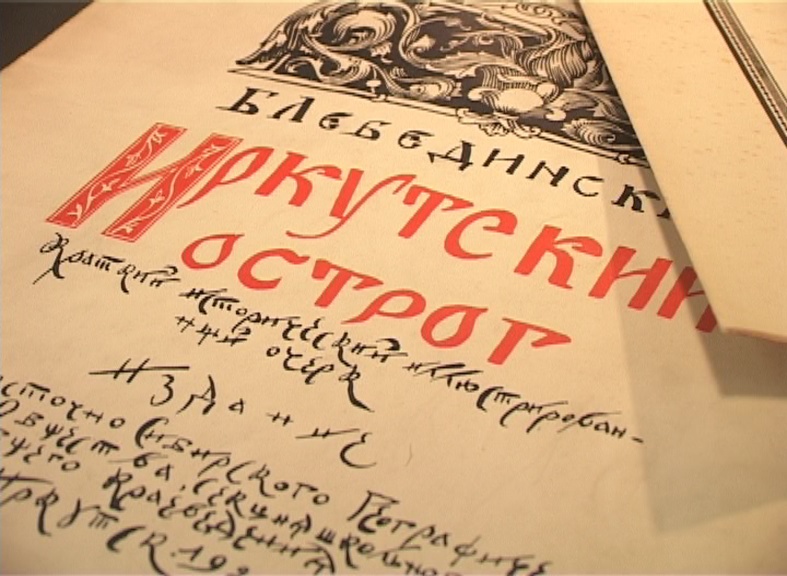 Б Лебединск
Иркутский
острог
Краткий исторический иллюстрирован-
ный очерк
Издание
сточно Сибирского Географиче
Общества, секция школьно
краеведения
Иркутск. 192